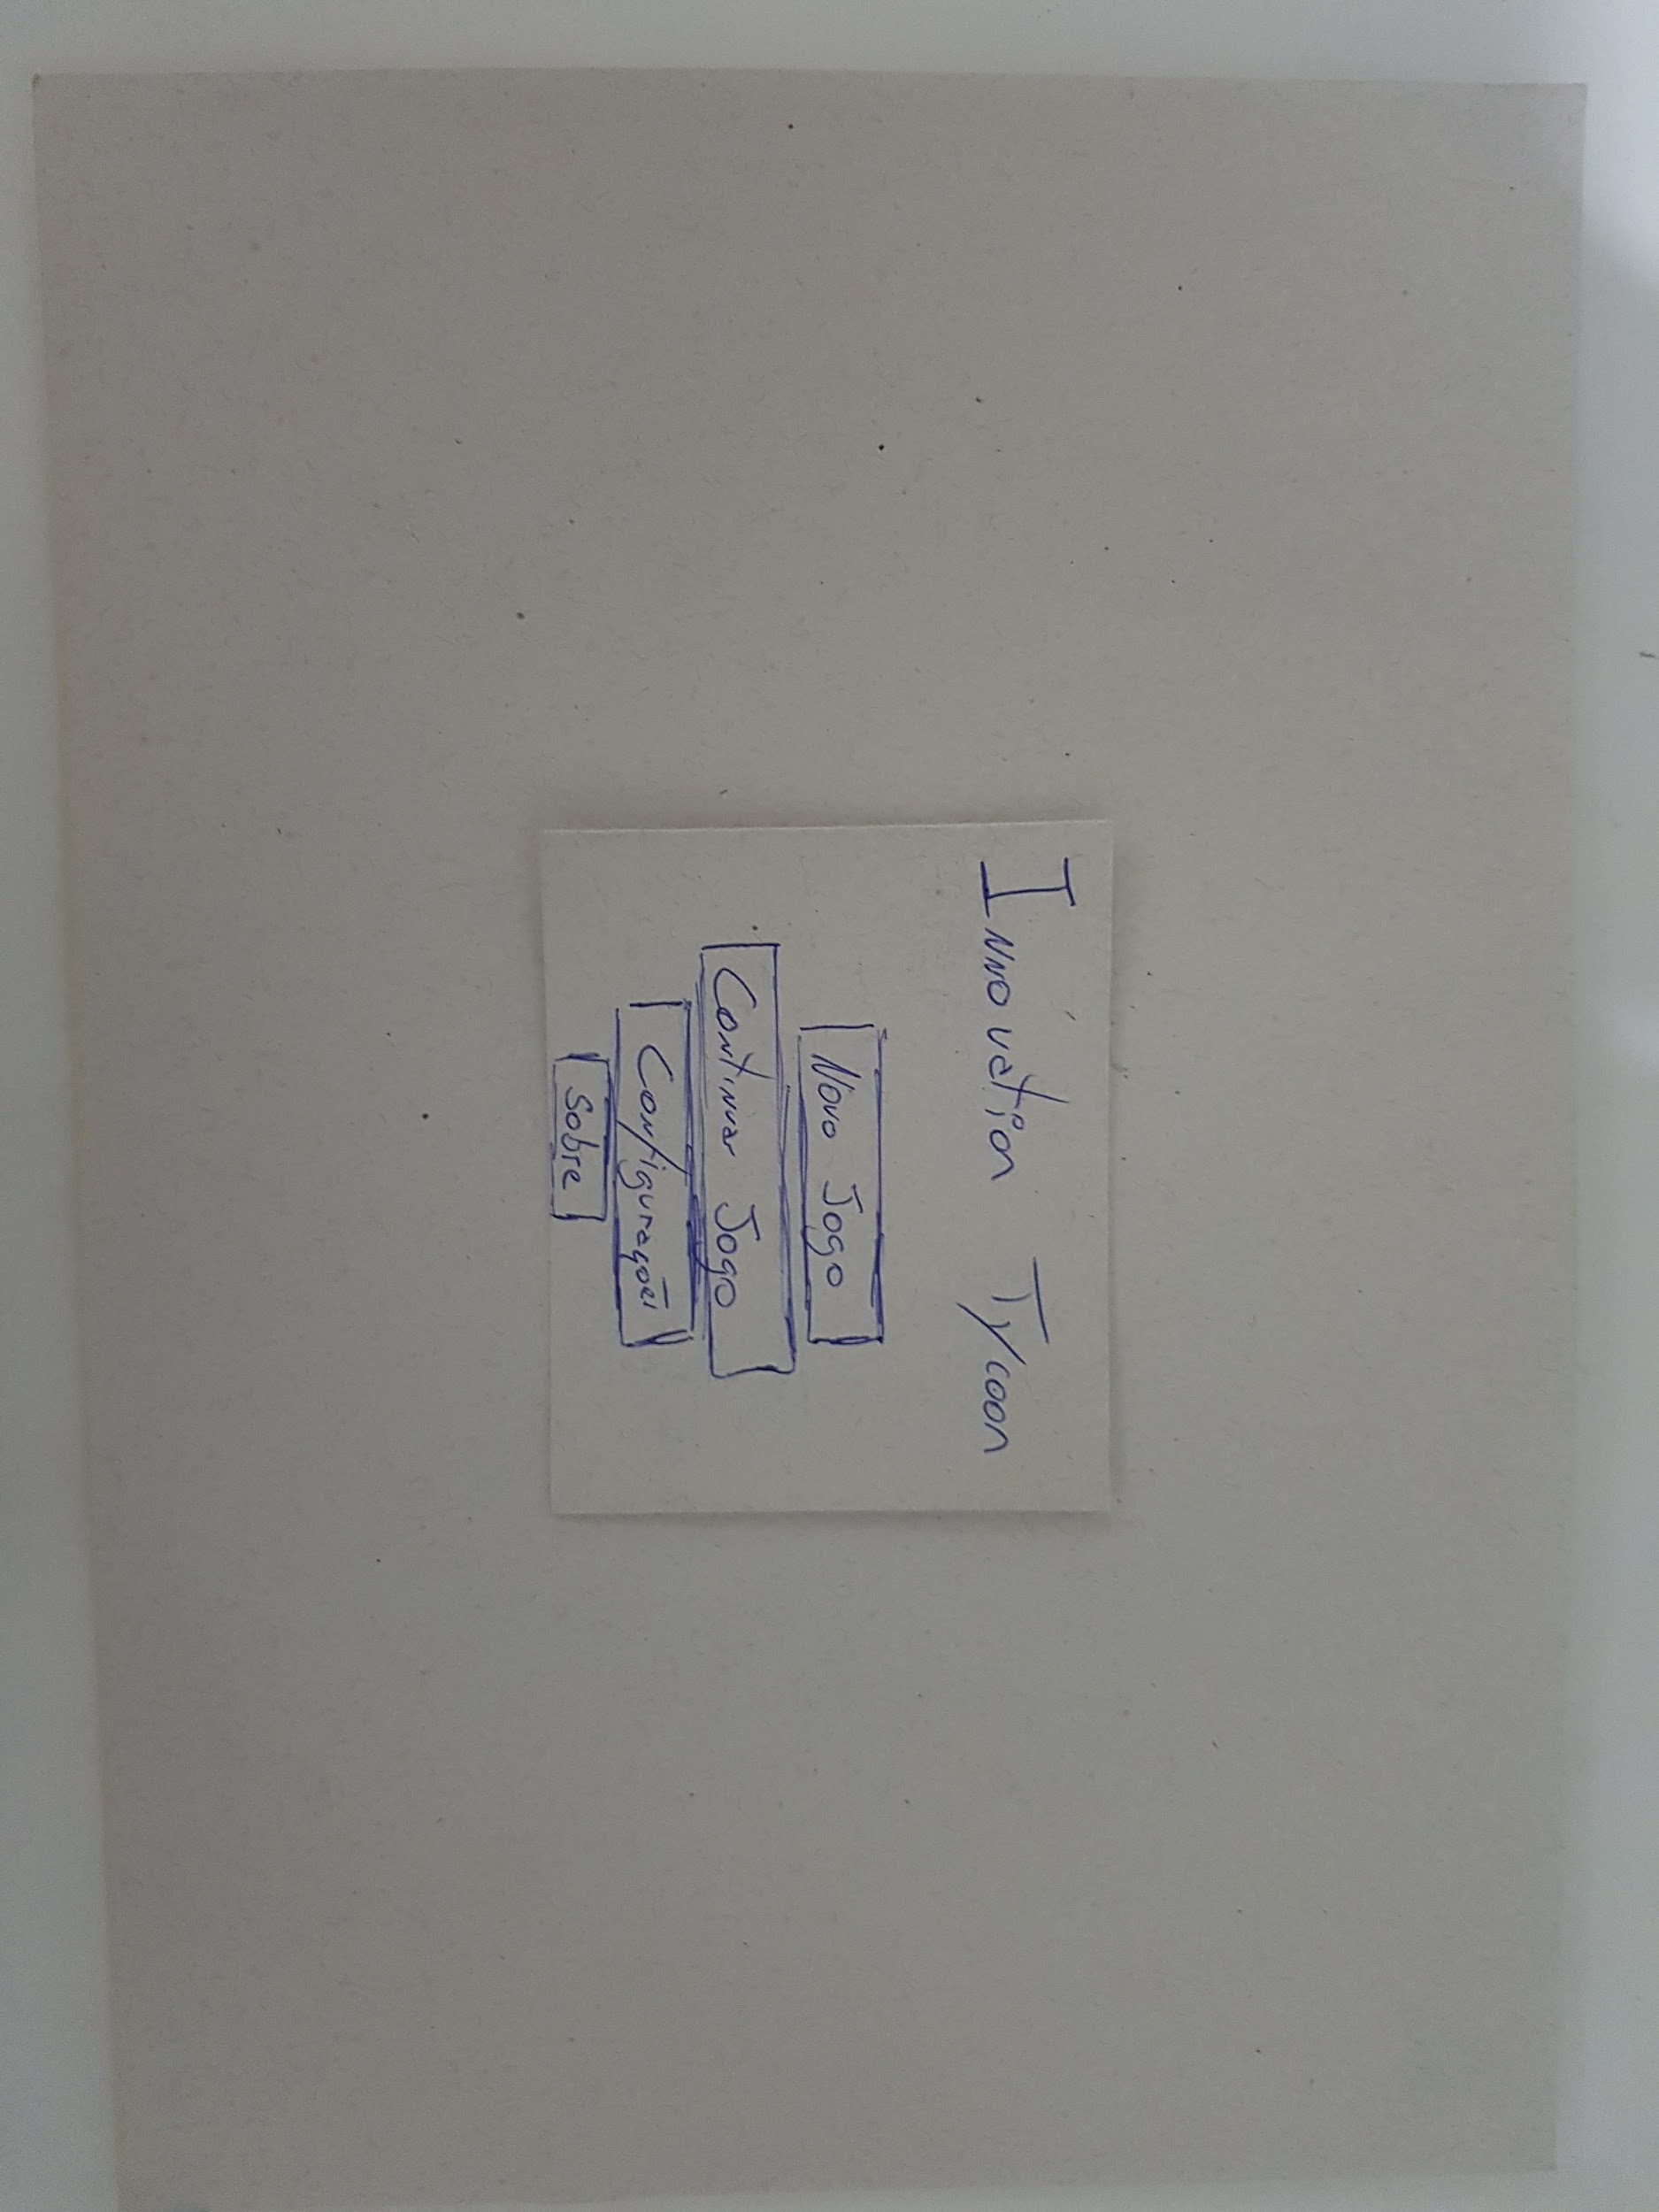 Innovation Tycoon
Novo Jogo
Continuar Jogo
Configurações
Sobre